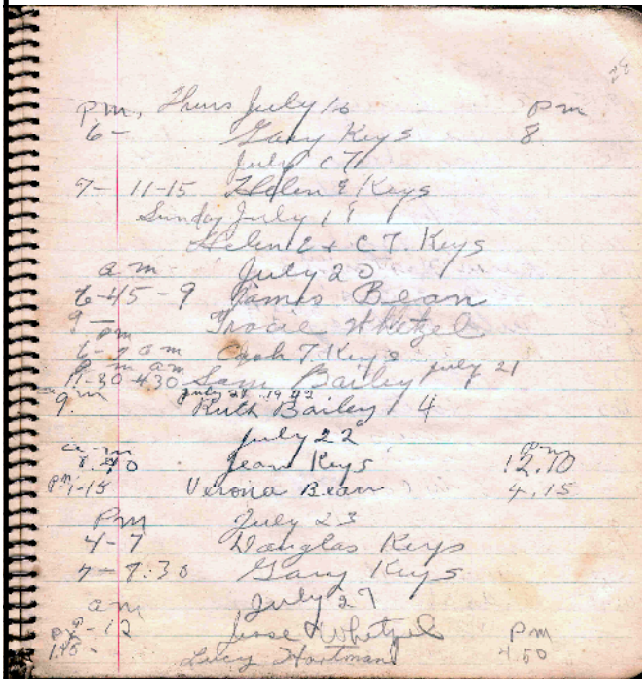 pm, Thurs July 16 pm
6- Gary Keys 8
July 17
7- 11-15 Helen E Keys
Sunday July 19
Helen E + C T. Keys
am July 20
6-45-9 James Bean
9- pm Tracie Whetzel
6-7 am Cash T. Keys July 21
pm am
11-30-430 Sam Bailey
July 21 1942
9 m Ruth Bailey 4
July 22
a-m pm
8.40 Jean Keys 12.10
pm 1-15 Verona Bean 4.15
Pm July 23
4-7 Douglas Keys
7-7:30 Gary Keys
am July 27
9-12 Jesse Whetzel Pm
1.45- Lucy Hartman 4.50